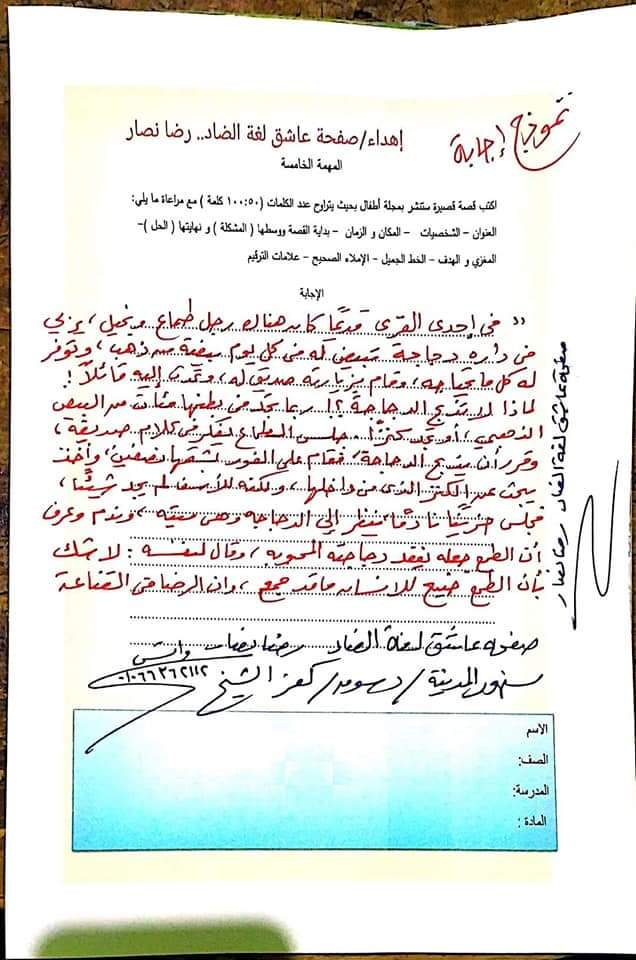 نموذج إجابة
إهداء/صفحة عاشق لغة الضاد.. رضا نصار
المهمة الخامسة
اكتب قصة قصيرة ستنشر بمجلة أطفال بحيث يتراوح عدد الكلمات (١٠٠:٥٠ كلمة) مع مراعاة ما يلي:
العنوان – الشخصيات – المكان و الزمان – بداية القصة ووسطها (المشكلة) و نهايتها (الحل) –
المغزي و الهدف – الخط الجميل – الإملاء الصحيح – علامات الترقيم
الإجابة
" في إحدى القرى قديمًا كان هناك رجل طماع وبخيل، يربي
في داره دجاجة تبيض له في كل يوم بيضة من ذهب، وتوفر
له كل ما يحتاجه، وقام بزيارته صديق له، وتحدث إليه قائلًا!
لماذا لا تذبح الدجاجة؟! ربما تجد في بطنها مئات من البيض
الذهبي، أو تجد كنزًا. جلس الطماع يفكر في كلام صديقه،
وقرر أن يذبح الدجاجة، فقام على الفور بشقها نصفين، وأخذ
يبحث عن الكنز الذي من داخلها، ولكنه للأسف لم يجد شيئًا،
فجلس حزينًا نادمًا ينظر إلى الدجاجة وهي ميتة، وندم وعرف
أن الطمع جعله يفقد دجاجته المحبوبة، وقال لنفسه: لا شك
بأن الطمع ضيع للإنسان ما قد جمع، وأن الرضا في القناعة
صفحة عاشق لغة الضاد رضا نصار
واتس
سنهور المدينة / دسوق / كفر الشيخ ٠١٠٦٦٣٦٢١١٢
صفحة عاشق لغة الضاد رضا نصار
الاسم
الصف:
المدرسة:
المادة :